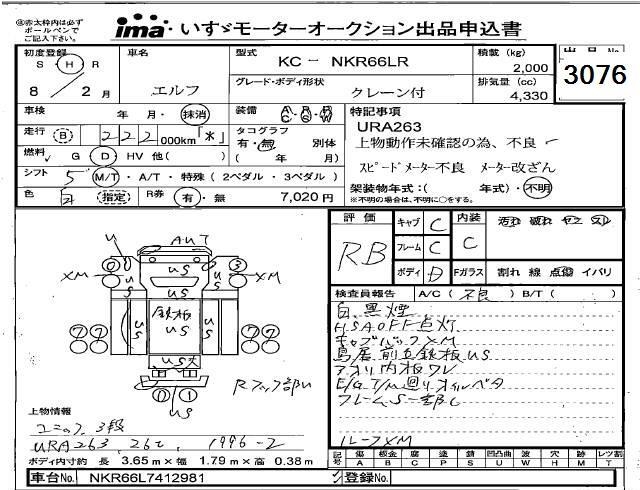 ※赤太枠内は必ずボールペンでご記入下さい。
ima いすゞモーターオークション出品申込書
初度登録 S・H・R 8 / 2月
車名 エルフ
型式 KC- NKR66LR
積載 (kg) 2,000
出品No 3076
グレード・ボディ形状 クレーン付
排気量 (cc) 4,330
車検 年 月・抹消
装備 A/C P/S P/W
特記事項
URA263
走行 B 222,000km「*」
タコグラフ 有・無 別体 ( 年 月)
上物動作未確認の為、不良
燃料 G D HV 他( )
スピードメーター不良 メーター改ざん
シフト 5 M/T・A/T・特殊(2ペダル・3ペダル)
架装物年式:( 年式)・不明
※不明の場合は、不明に○をする。
色 白 指定 R券 有・無 7,020円
評価 RB
キャブ C 内装 C 汚れ 破れ ヤニ スレ
フレーム C
ボディ D Fガラス 割れ 線 点傷 イバリ
検査員報告 A/C( 不良 ) B/T( )
白、黒煙
HSA OFF点灯
キャブバックXM
鳥居前立鉄板US
アオリ内板ワレ
E/G T/M廻りオイルベタ
フレームS一部C
ルーフXM
U AUT
XM US US US XM
0 3
US 鉄板 US US
7 7 7 7
US大
0 1
US
Rフック部U
上物情報
ユニック,3段
URA263, 26t, 1996-2
ボディ内寸約 長 3.65m×幅 1.79m×高 0.38m
記号 傷 A 板金 B 腐 C 塗 P 錆 S 凹凸曲 U 波 W 穴 H 跡 M レツ割 T
車台No. NKR66L7412981
登録No.